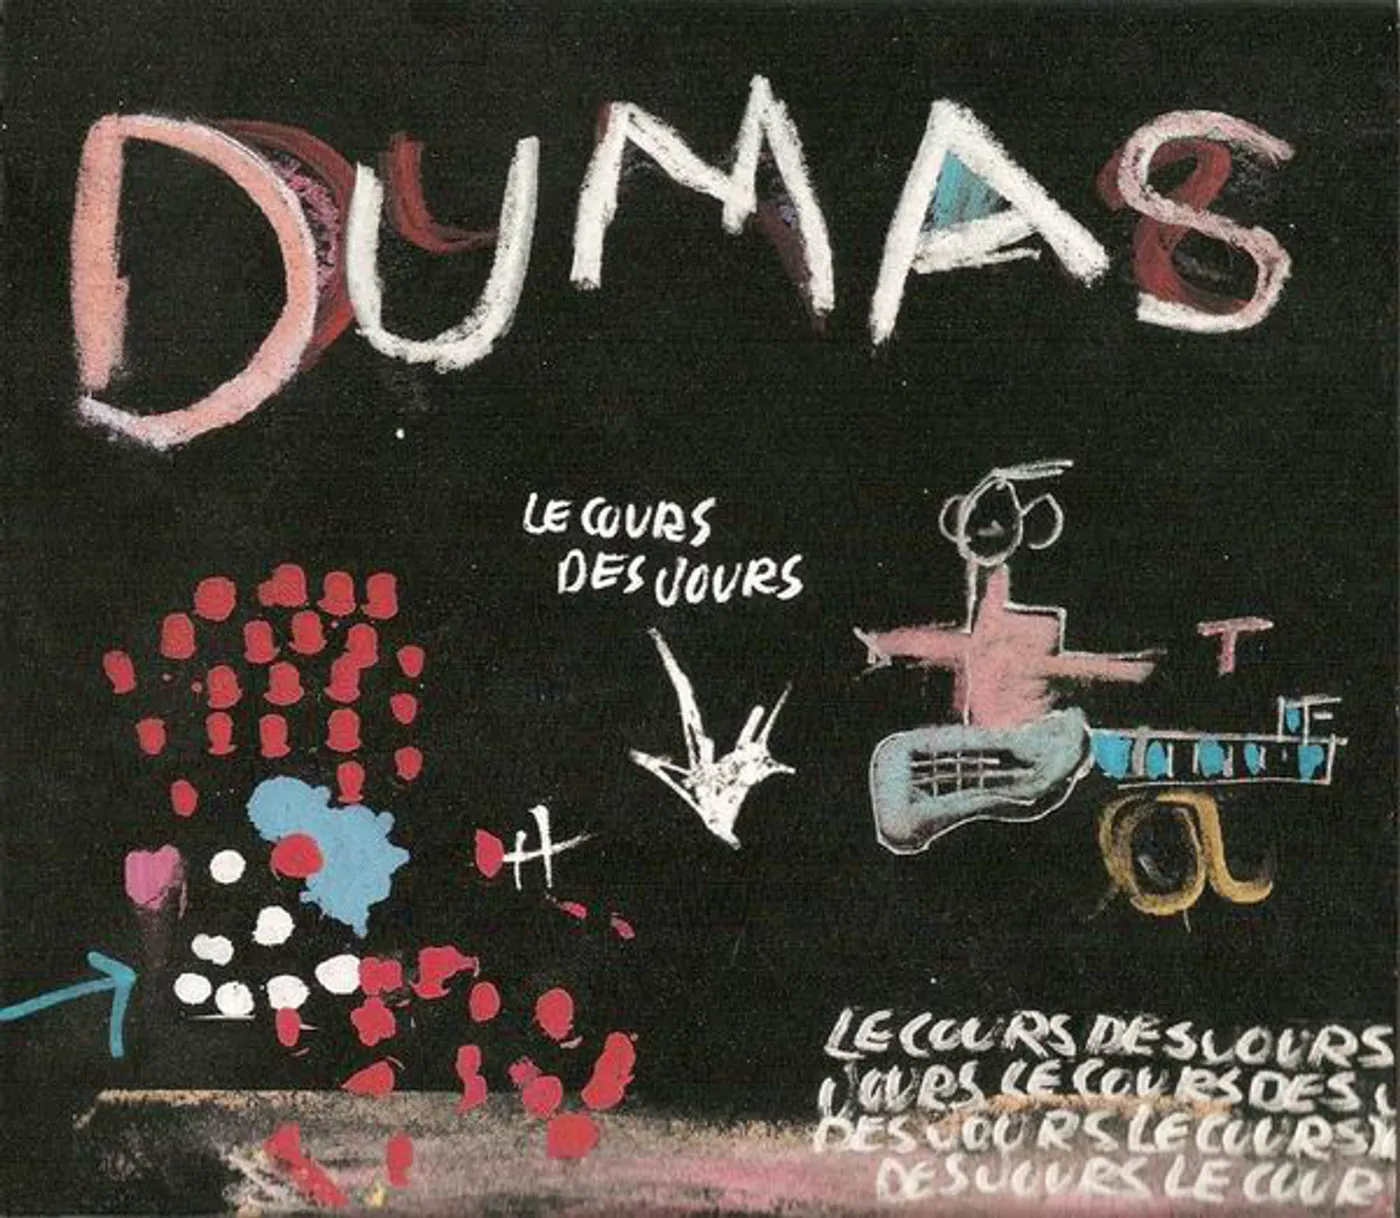 DUMAS
LE COURS
DES JOURS
T
a
LE COURS DES JOURS
JOURS LE COURS DES J
DES JOURS LE COURS
DES JOURS LE COUR